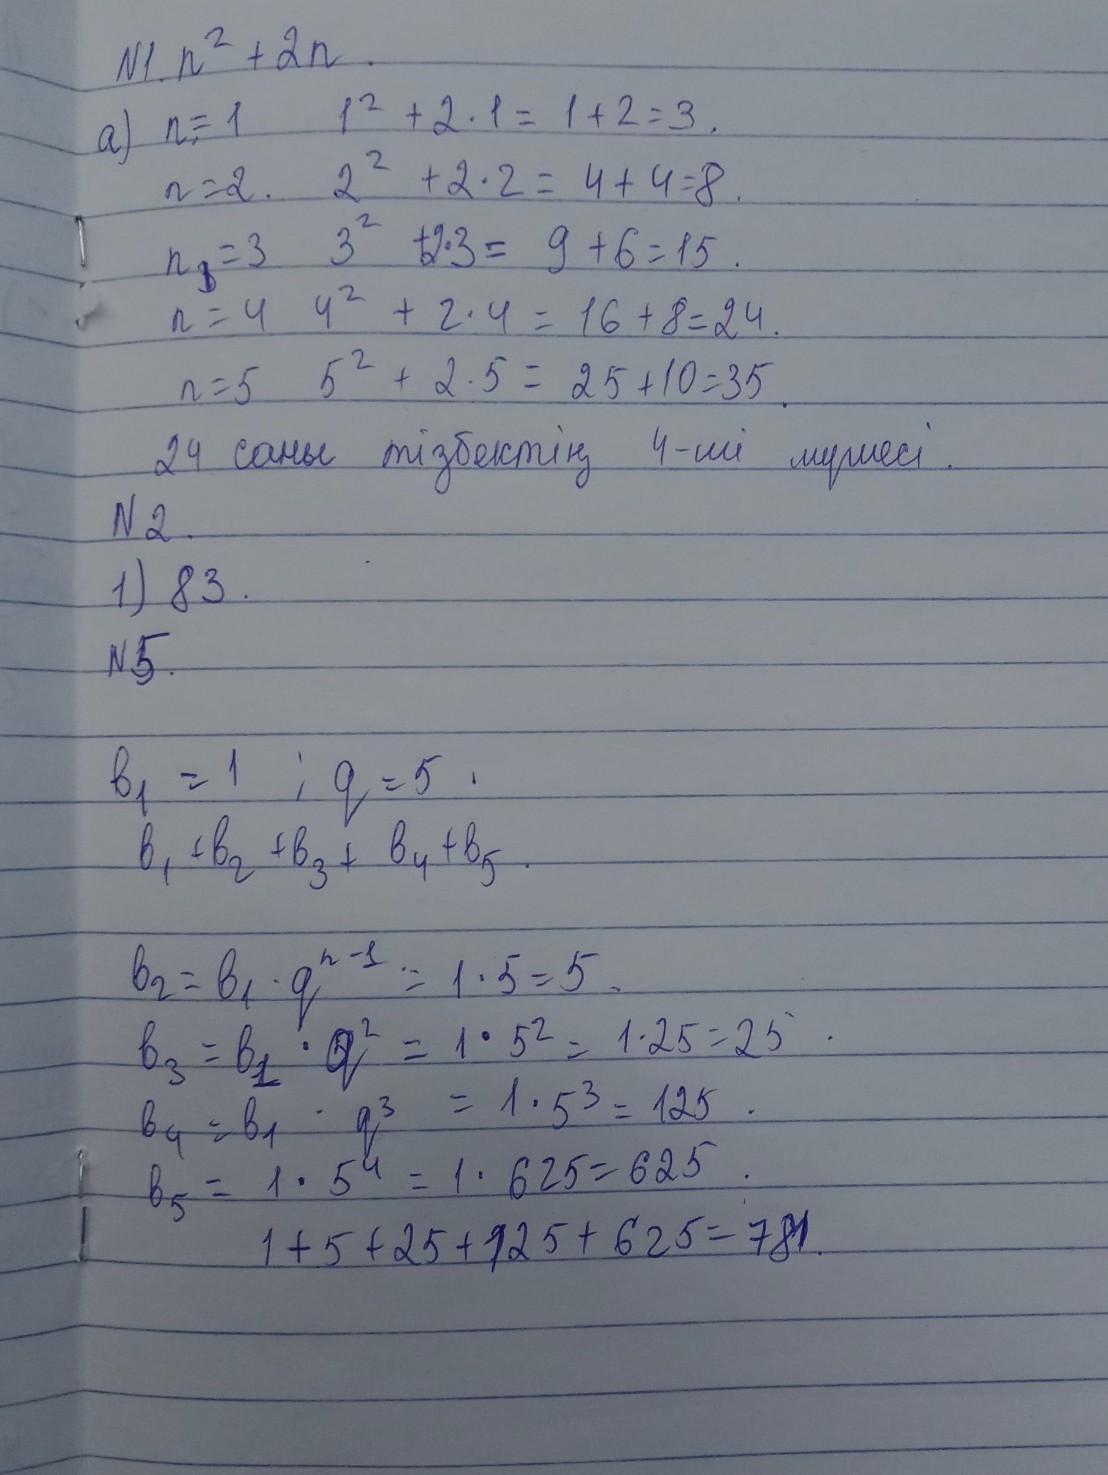 N1. n² + 2n.
а) n = 1 1² + 2·1 = 1+2=3.
n=2. 2² +2·2 = 4+4=8.
n₃ = 3 3² +2·3 = 9+6=15.
n = 4 4² + 2·4 = 16+8=24.
n=5 5² + 2·5 = 25+10=35.
24 саны тізбектің 4-ші мүшесі.
N2.
1) 83.
N5.
b₁ = 1 ; q = 5.
b₁ +b₂ +b₃ + b₄ +b₅.
b₂ = b₁ · qⁿ⁻¹ = 1·5=5.
b₃ = b₁ · q² = 1·5² = 1·25=25.
b₄ = b₁ · q³ = 1·5³ = 125.
b₅ = 1·5⁴ = 1·625=625.
1+5+25+125+625=781.